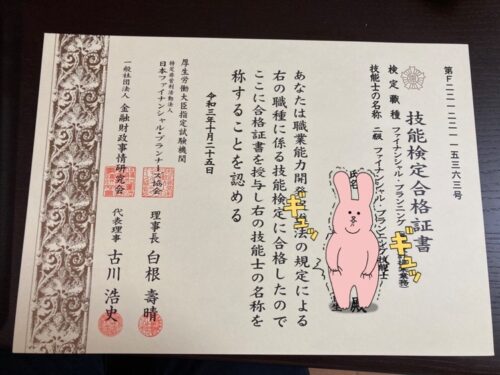 第F二二一一二二一一五三六三号
技能検定合格証書
検定職種 ファイナンシャル・プランニング
技能士の名称 二級 ファイナンシャル・プランニング技能士
氏名
殿
ギュッ
ギュッ
あなたは職業能力開発 法の規定による
右の職種に係る技能検定に合格したので
ここに合格証書を授与し右の技能士の名称を
称することを認める
令和三年十月二十五日
厚生労働大臣指定試験機関
特定非営利活動法人
日本ファイナンシャル・プランナーズ協会
理事長 白根壽晴
一般社団法人 金融財政事情研究会
代表理事 古川浩史